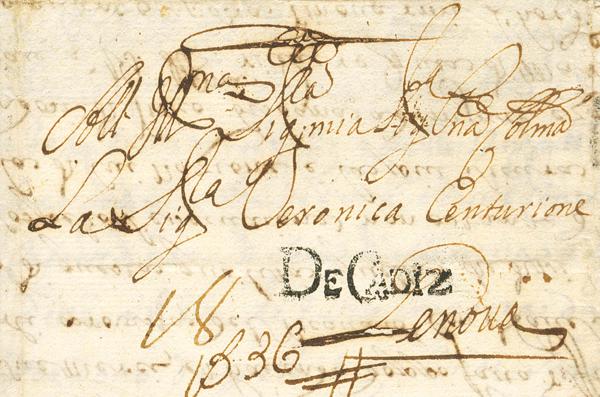 All Ill.ma Sig.ra mia Sig.ra
La Sig.ra Veronica Centurione
DE CADIZ
18 Genova
1336